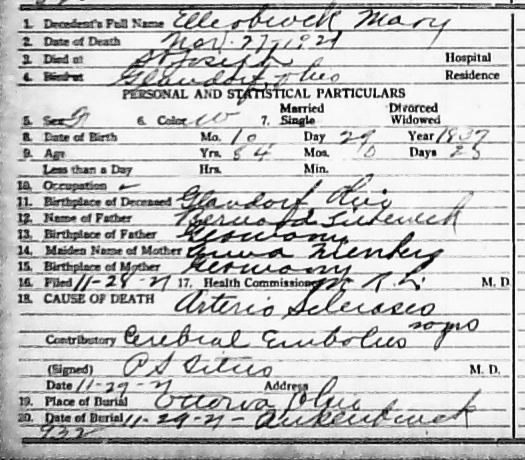 1. Decedent's Full Name Ellerbrock Mary
2. Date of Death Nov. 27-1921
3. Died at St Joseph Hospital
4. Died at Glandorf, Ohio Residence
PERSONAL AND STATISTICAL PARTICULARS
5. Sex F 6. Color W 7. Married Single Divorced Widowed
8. Date of Birth Mo. 10 Day 29 Year 1837
9. Age Yrs. 84 Mos. 0 Days 28
Less than a Day Hrs. Min.
10. Occupation
11. Birthplace of Deceased Glandorf Ohio
12. Name of Father Bernard
13. Birthplace of Father Germany
14. Maiden Name of Mother
15. Birthplace of Mother Germany
16. Filed 11-28-21 17. Health Commissioner M. D.
18. CAUSE OF DEATH Arterio Sclerosis
Contributory Cerebral Embolus
(Signed) M. D.
Date 11-29-21 Address
19. Place of Burial Ottawa Ohio
20. Date of Burial 11-29-21-
932